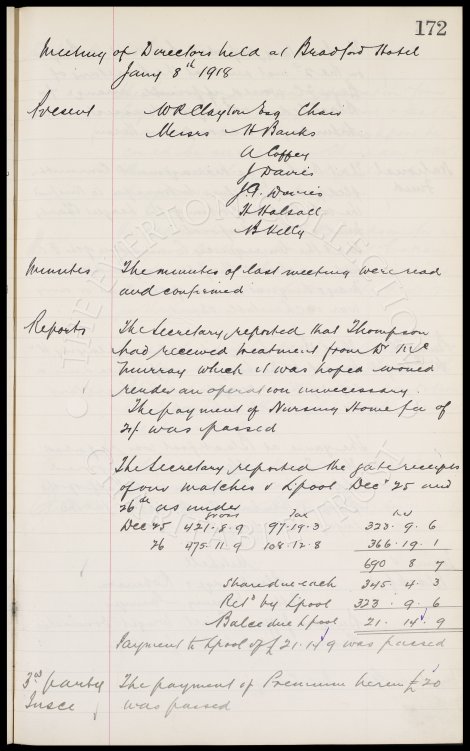 172
Meeting of Directors held at Bradford Hotel
Jany 8th 1918
Present W R Clayton Esq Chair
Messrs H Banks
A Coffey
J Davies
J. G. Davies
H Halsall
B Kelly
Minutes The minutes of last meeting were read
and confirmed
Reports The Secretary reported that Thompson
had received treatment from Dr
Murray which it was hoped would
render an operation unnecessary.
The payment of Nursing Home fee of
was passed
The Secretary reported the gate receipts
of our matches v Lpool Decr 25 and
26th as under
Gross Tax
Dec 25 421. 8. 9 97. 19. 3 323. 9. 6
26 475. 11. 9 108. 12. 8 366. 19. 1
690 8 7
Share due each 345. 4. 3
Retd by Lpool 323. 9. 6
Balce due Lpool 21. 14. 9
Payment to Lpool of £21. 14. 9 was passed
3rd party The payment of Premium herein £20
Insce was passed